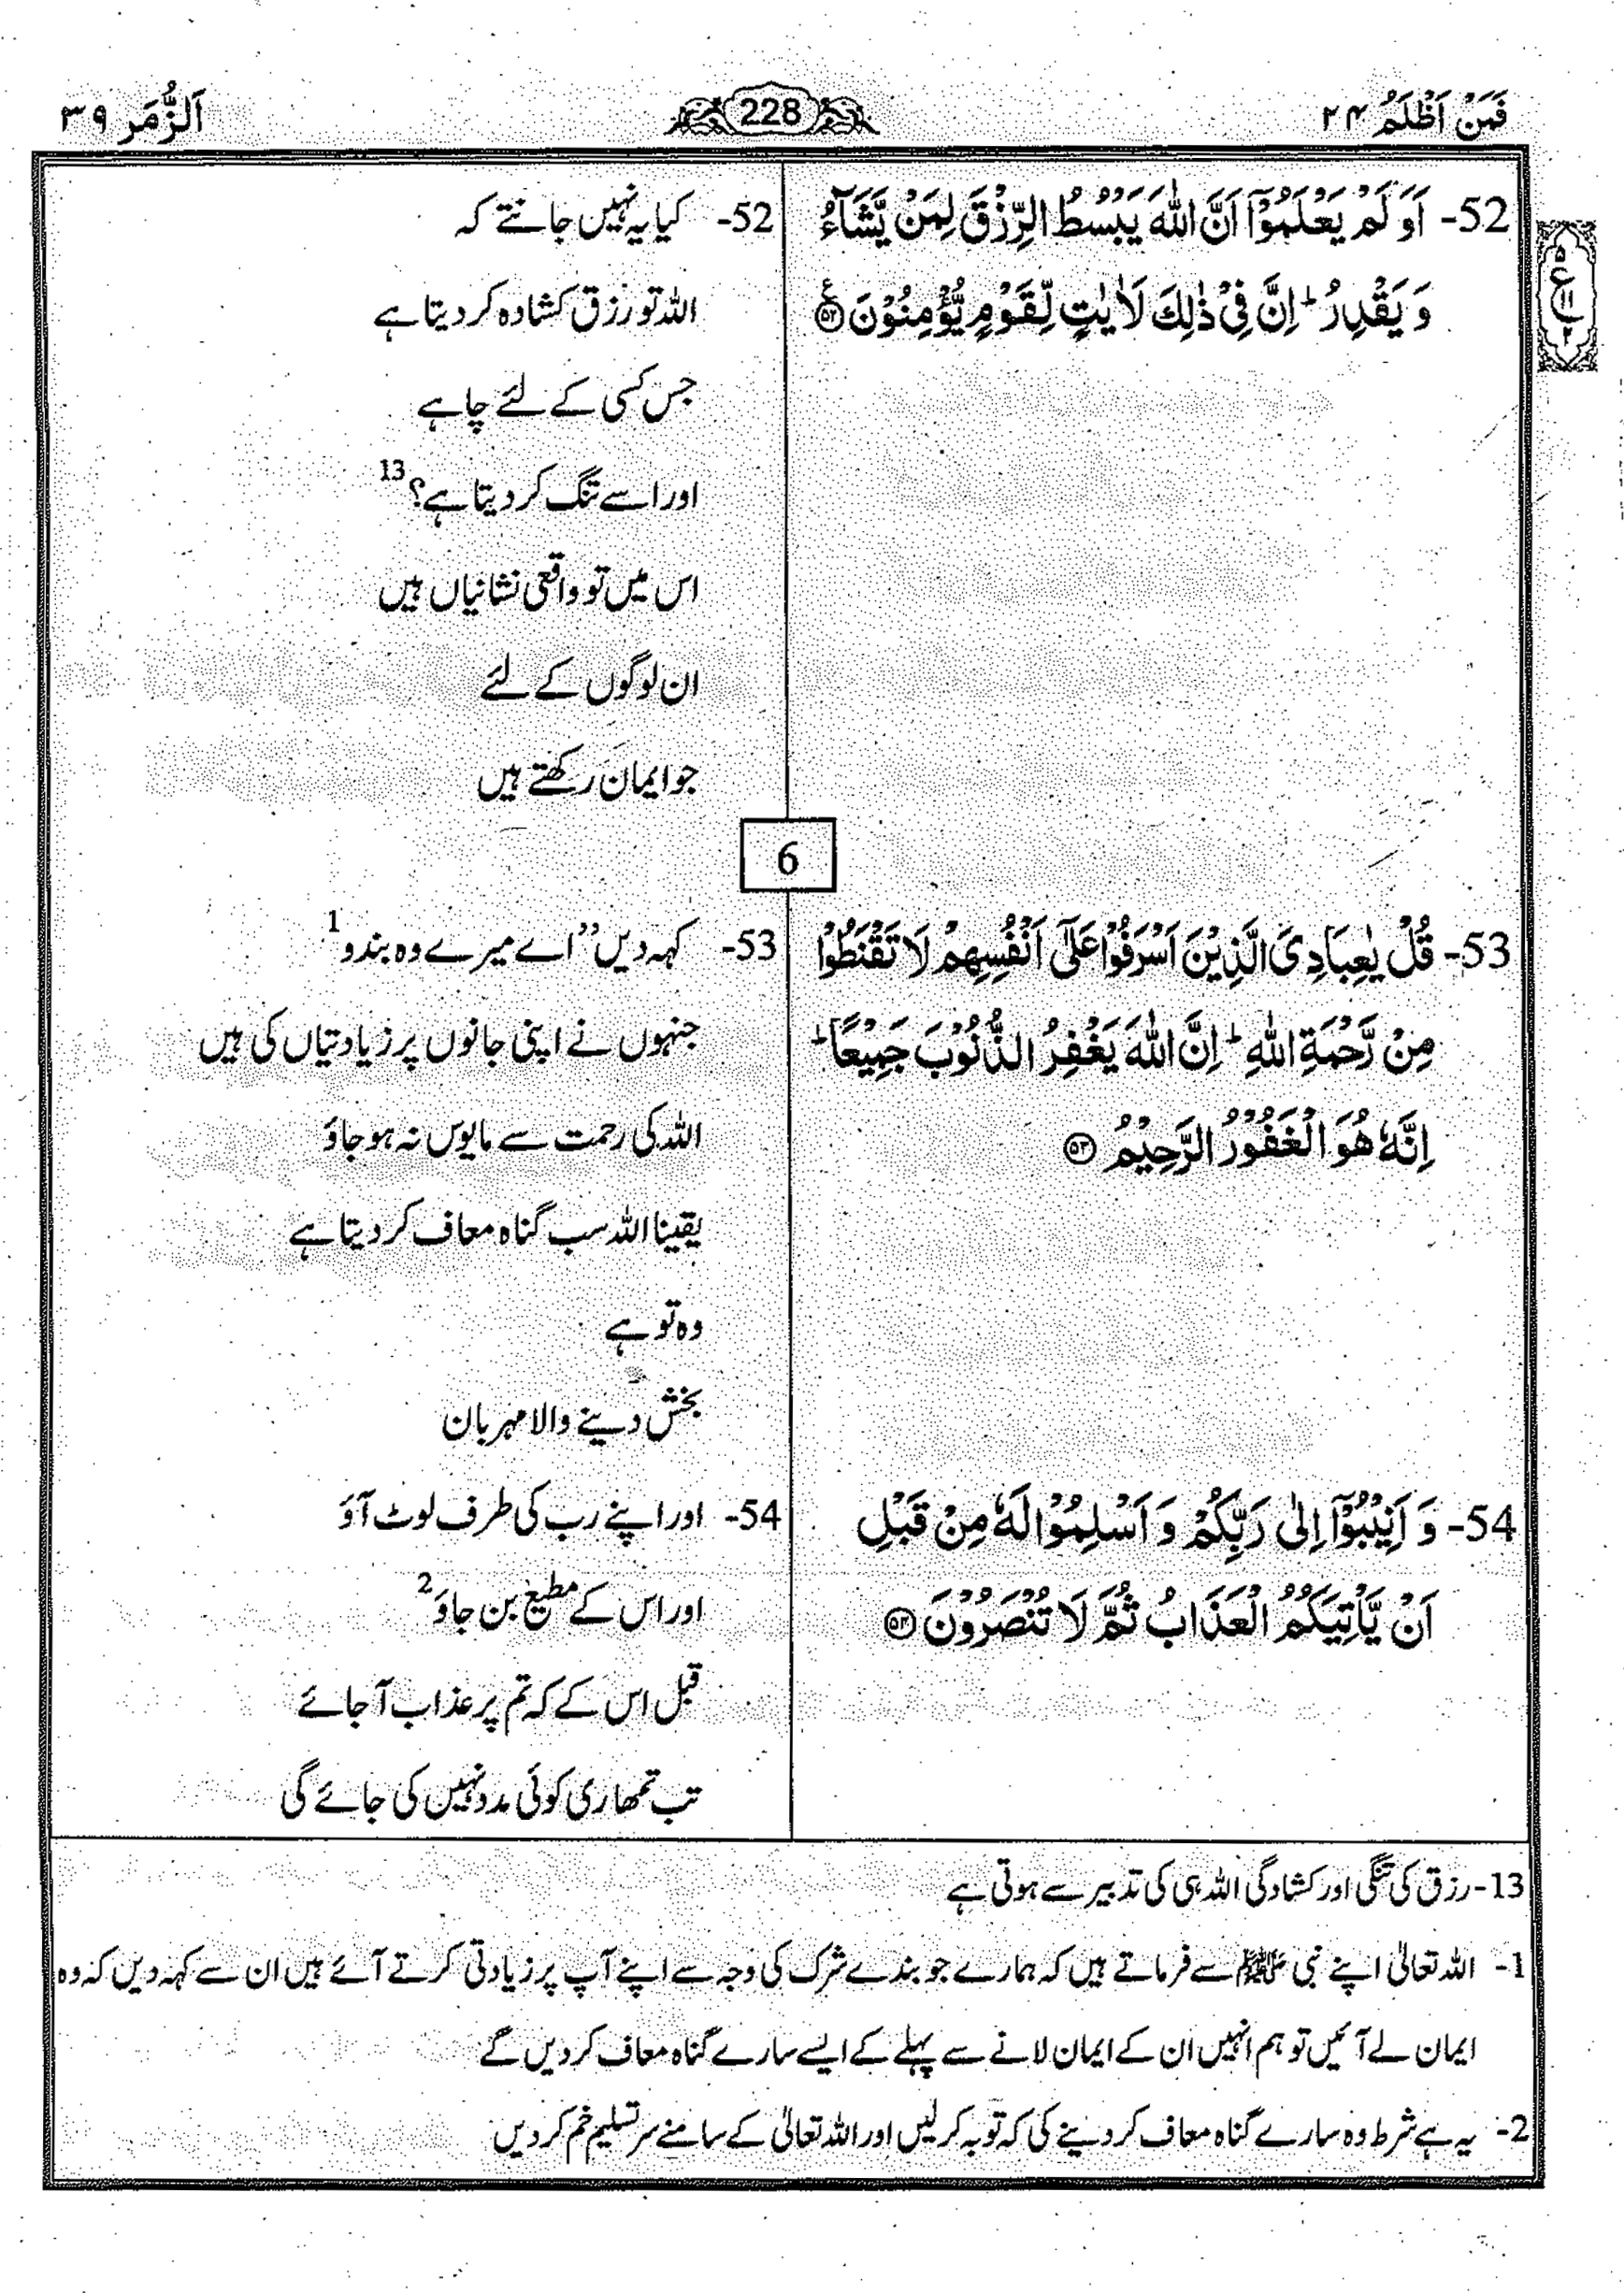 فَمَنْ اَظْلَمُ ۲۴
228
اَلزُّمَر ۳۹
52- اَوَ لَمْ یَعْلَمُوْۤا اَنَّ اللّٰهَ یَبْسُطُ الرِّزْقَ لِمَنْ یَّشَآءُ
وَ یَقْدِرُ ؕ اِنَّ فِیْ ذٰلِكَ لَاٰیٰتٍ لِّقَوْمٍ یُّؤْمِنُوْنَ ﴿۵۲﴾ ع
۵
ع
۱۱
۲
52- کیا یہ نہیں جانتے کہ
اللہ تو رزق کشادہ کر دیتا ہے
جس کسی کے لئے چاہے
اور اسے تنگ کر دیتا ہے؟ 13
اس میں تو واقعی نشانیاں ہیں
ان لوگوں کے لئے
جو ایمان رکھتے ہیں
6
53- قُلْ یٰعِبَادِیَ الَّذِیْنَ اَسْرَفُوْا عَلٰۤی اَنْفُسِهِمْ لَا تَقْنَطُوْا
مِنْ رَّحْمَةِ اللّٰهِ ؕ اِنَّ اللّٰهَ یَغْفِرُ الذُّنُوْبَ جَمِیْعًا ؕ
اِنَّهٗ هُوَ الْغَفُوْرُ الرَّحِیْمُ ﴿۵۳﴾
53- کہہ دیں ”اے میرے وہ بندو 1
جنہوں نے اپنی جانوں پر زیادتیاں کی ہیں
اللہ کی رحمت سے مایوس نہ ہو جاؤ
یقینا اللہ سب گناہ معاف کر دیتا ہے
وہ تو ہے
بخش دینے والا مہربان
54- وَ اَنِیْبُوْۤا اِلٰی رَبِّكُمْ وَ اَسْلِمُوْا لَهٗ مِنْ قَبْلِ
اَنْ یَّاْتِیَكُمُ الْعَذَابُ ثُمَّ لَا تُنْصَرُوْنَ ﴿۵۴﴾
54- اور اپنے رب کی طرف لوٹ آؤ
اور اس کے مطیع بن جاؤ 2
قبل اس کے کہ تم پر عذاب آ جائے
تب تمھاری کوئی مدد نہیں کی جائے گی
13- رزق کی تنگی اور کشادگی اللہ ہی کی تدبیر سے ہوتی ہے
1- اللہ تعالیٰ اپنے نبی ﷺ سے فرماتے ہیں کہ ہمارے جو بندے شرک کی وجہ سے اپنے آپ پر زیادتی کرتے آئے ہیں ان سے کہہ دیں کہ وہ
ایمان لے آئیں تو ہم انہیں ان کے ایمان لانے سے پہلے کے ایسے سارے گناہ معاف کر دیں گے
2- یہ ہے شرط وہ سارے گناہ معاف کر دینے کی کہ توبہ کر لیں اور اللہ تعالیٰ کے سامنے سر تسلیم خم کر دیں